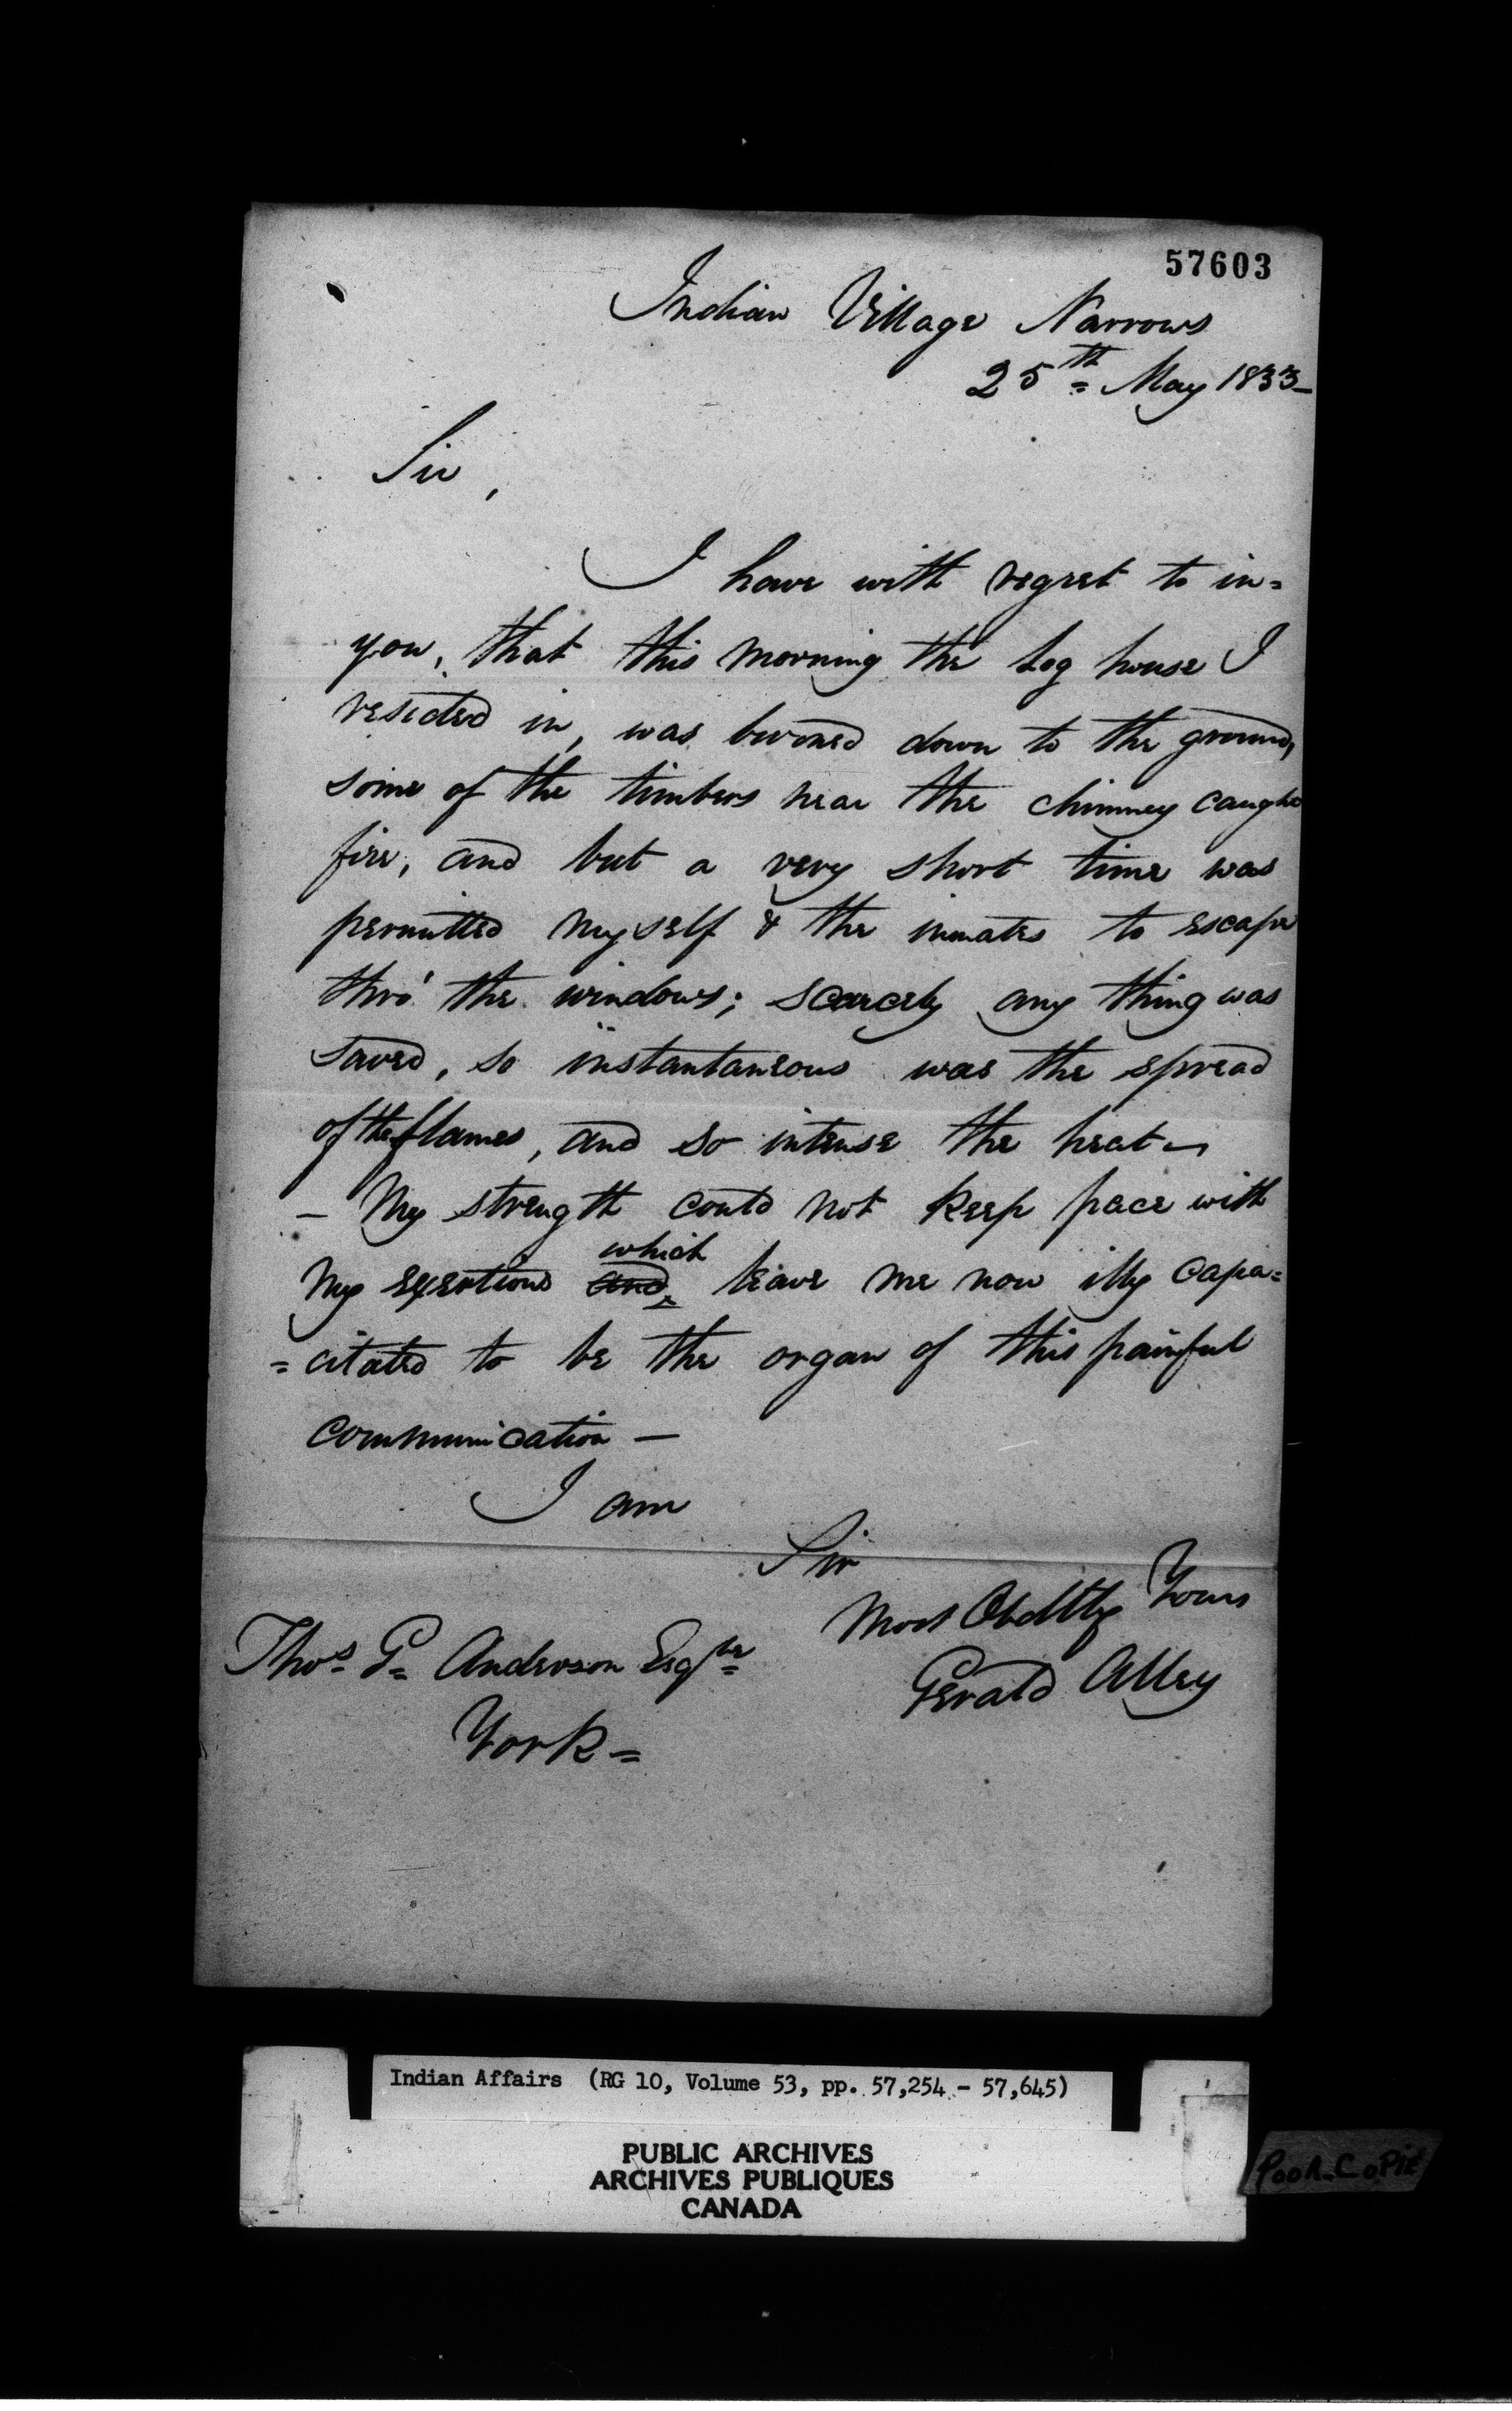 57603
Indian Village Narrows
25th May 1833
Sir,
I have with regret to in=
you, that this morning the Log house I
resided in, was burned down to the ground,
some of the timbers near the chimney caught
fire, and but a very short time was
permitted myself & the inmates to escape
thro' the windows; scarcely any thing was
saved, so instantaneous was the spread
of the flames, and so intense the heat —
— My strength could not keep pace with
which
my exertions and leave me now illy capa=
=citated to be the organ of this painful
communication —
I am
Sir
Most Obdtly Yours
Thos G. Anderson Esqre
Gerald Alley
York =
Indian Affairs (RG 10, Volume 53, pp. 57,254 - 57,645)
PUBLIC ARCHIVES
ARCHIVES PUBLIQUES
CANADA
Poor Copie